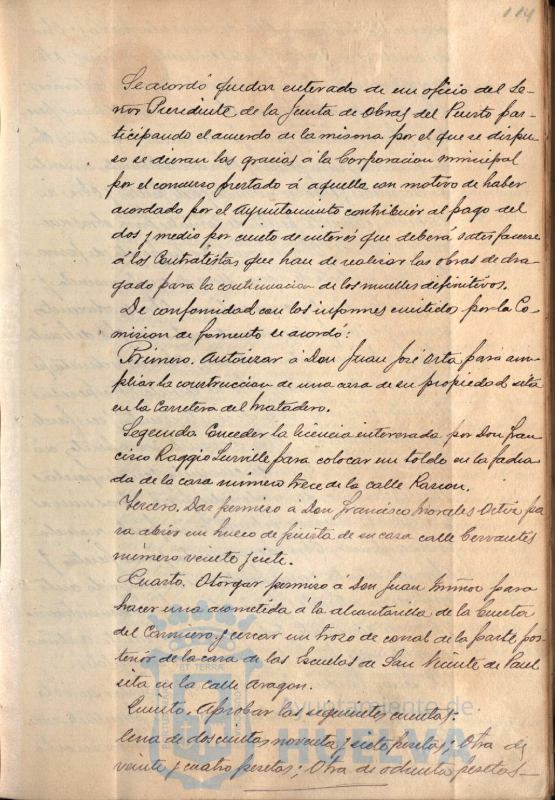 114
Se acordó quedar enterado de un oficio del Se-
ñor Presidente de la Junta de Obras del Puerto par-
ticipando el acuerdo de la misma por el que se dispu-
so se dieran las gracias á la Corporacion municipal
por el concurso prestado á aquella con motivo de haber
acordado por el Ayuntamiento contribuir al pago del
dos y medio por ciento de interés que deberá satisfacerse
á los Contratistas que han de realizar las obras de dra-
gado para la continuacion de los muelles definitivos.
De conformidad con los informes emitidos por la Co-
mision de fomento se acordó:
Primero. Autorizar á Don Juan José Orta para am-
pliar la construccion de una casa de su propiedad sita
en la Carretera del Matadero.
Segundo Conceder la licencia interesada por Don Fran-
cisco Raggio para colocar un toldo en la facha-
da de la casa número trece de la calle Rascon.
Tercero. Dar permiso á Don Francisco Morales Ortiz pa
ra abrir un hueco de puerta de su casa calle Cervantes
número veinte y siete.
Cuarto. Otorgar permiso á Don Juan Muñoz para
hacer una acometida á la alcantarilla de la Cuesta
del Carnicero y cercar un trozo de corral de la parte pos-
terior de la casa de las Escuelas de San Vicente de Paul
sita en la calle Aragon.
Quinto. Aprobar las siguientes cuentas:
Una de doscientas noventa y siete pesetas; Otra de
veinte y cuatro pesetas; Otra de ochenta pesetas
ET TERRA
Ayuntamiento de
HUELVA